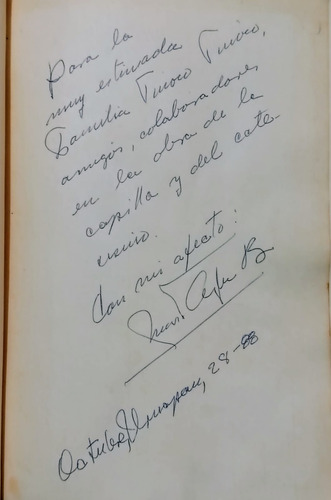 Para la
muy estimada
Familia Tinoco Tinoco,
amigos, colaboradores
en la obra de la
capilla y del cate-
cismo.
Con mi afecto:
Octubre, 28-88